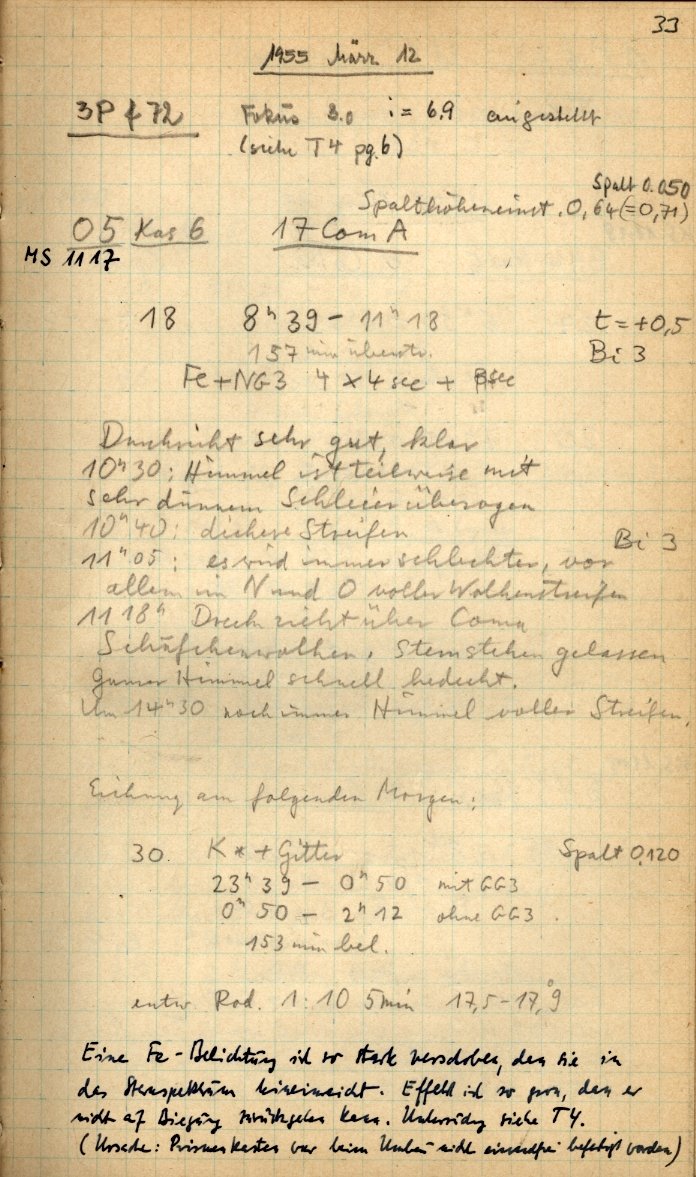 33
1955 März 12
3P f 72 Fokus 8.0 i = 6.9 eingestellt
(siehe T4 pg. 6)
Spalt 0.050
Spalthöheneinst. 0,64 (=0,71)
05 Kas 6 17 Com A
MS 1117
18 8ʰ39 – 11ʰ18 t = +0,5
157 min überstr. Bi 3
Fe + NG3 4 x 4 sec + 8sec
Durchsicht sehr gut, klar
10ʰ30: Himmel ist teilweise mit
sehr dünnem Schleier überzogen
10ʰ40: dichere Streifen Bi 3
11ʰ05: es wird immer schlechter, vor
allem im N und O voller Wolkenstreifen
11 18ʰ Dreck zieht über Coma
Schäfchenwolken, Stern stehen gelassen
Ganzer Himmel schnell bedeckt.
Um 14ʰ30 noch immer Himmel voller Streifen.
Eichung am folgenden Morgen:
30. K* + Gitter Spalt 0,120
23ʰ39 – 0ʰ50 mit GG3
0ʰ50 – 2ʰ12 ohne GG3
153 min bel.
entw. Rod. 1:10 5min 17,5 – 17,9°
Eine Fe-Belichtung ist so stark verschoben, dass sie in
das Sternspektrum hineinreicht. Effekt ist so gross, dass er
nicht auf Biegung zurückgehen kann. Untersuchung siehe T4.
(Ursache: Prismenkasten war beim Umbau nicht einwandfrei befestigt worden)